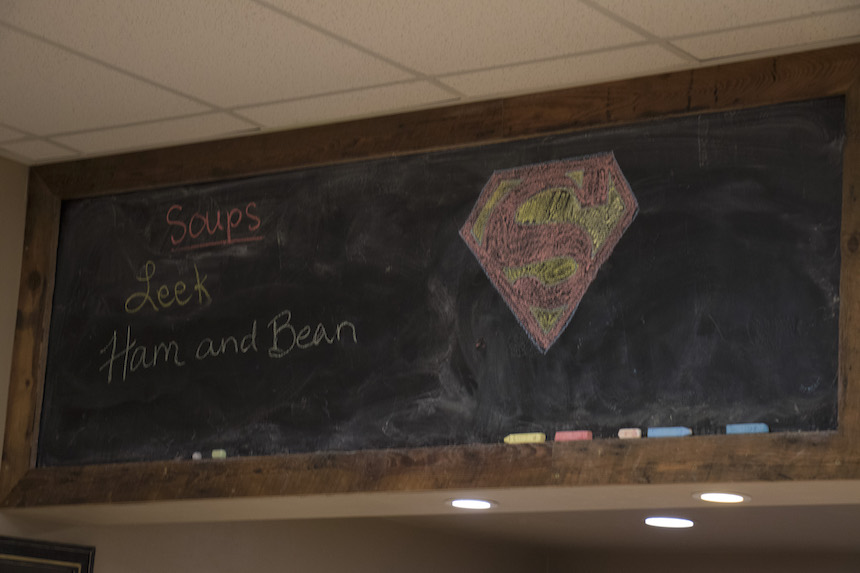 Soups
Leek
Ham and Bean
S